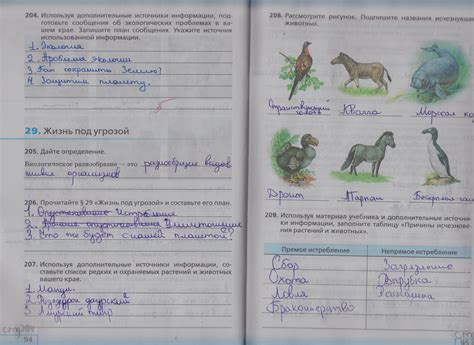 204. Используя дополнительные источники информации, под-
готовьте сообщение об экологических проблемах в ва-
шем крае. Запишите план сообщения. Укажите источник
использованной информации.
1. Экология
2. Проблема экологии
3. Как сохранить Землю?
4. Защитим планету.
5
29. Жизнь под угрозой
205. Дайте определение.
Биологическое разнообразие – это разнообразие видов
живых организмов
206. Прочитайте § 29 «Жизнь под угрозой» и составьте его план.
1. Истребление
2.
3. Что же будет с нашей планетой?
207. Используя дополнительные источники информации, со-
ставьте список редких и охраняемых растений и животных
вашего края.
1.
2. даурский
3. Амурский тигр
94
208. Рассмотрите рисунок. Подпишите названия исчезнувши
животных.
Странствующий Квагга Морская ко
голубь
Дронт Тарпан Бескрылая га
209. Используя материал учебника и дополнительные источни-
ки информации, заполните таблицу «Причины исчезнове-
ния растений и животных».
Прямое истребление Непрямое истребление
Сбор Загрязнение
Охота Вырубка
Ловля Распашка
Браконьерство